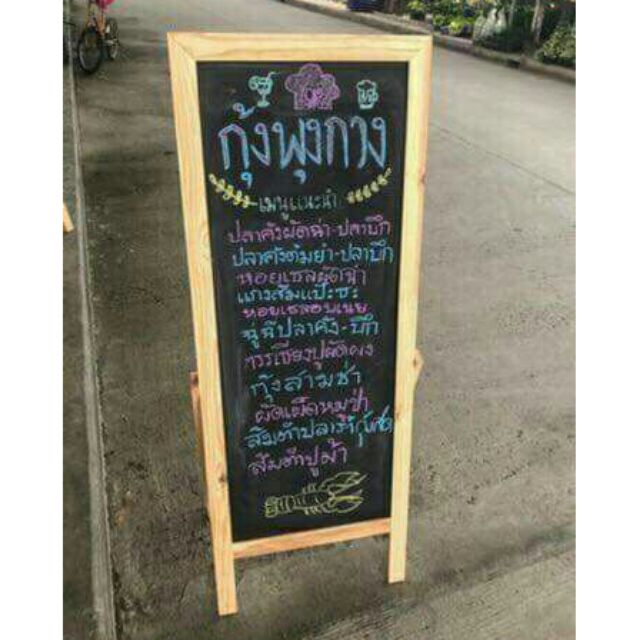 กุ้งพุงกาง
เมนูแนะนำ
ปลาคังผัดฉ่า-ปลาบึก
ปลาคังต้มยำ-ปลาบึก
หอยเชลผัดฉ่า
แกงส้มแป๊ะซะ
หอยเชลอบเนย
ฉู่ฉี่ปลาคัง-บึก
กรรเชียงปูผัดผง
กุ้งสามช่า
ผัดเผ็ดหมูป่า
ส้มตำปลาร้ากุ้งสด
ส้มตำปูม้า